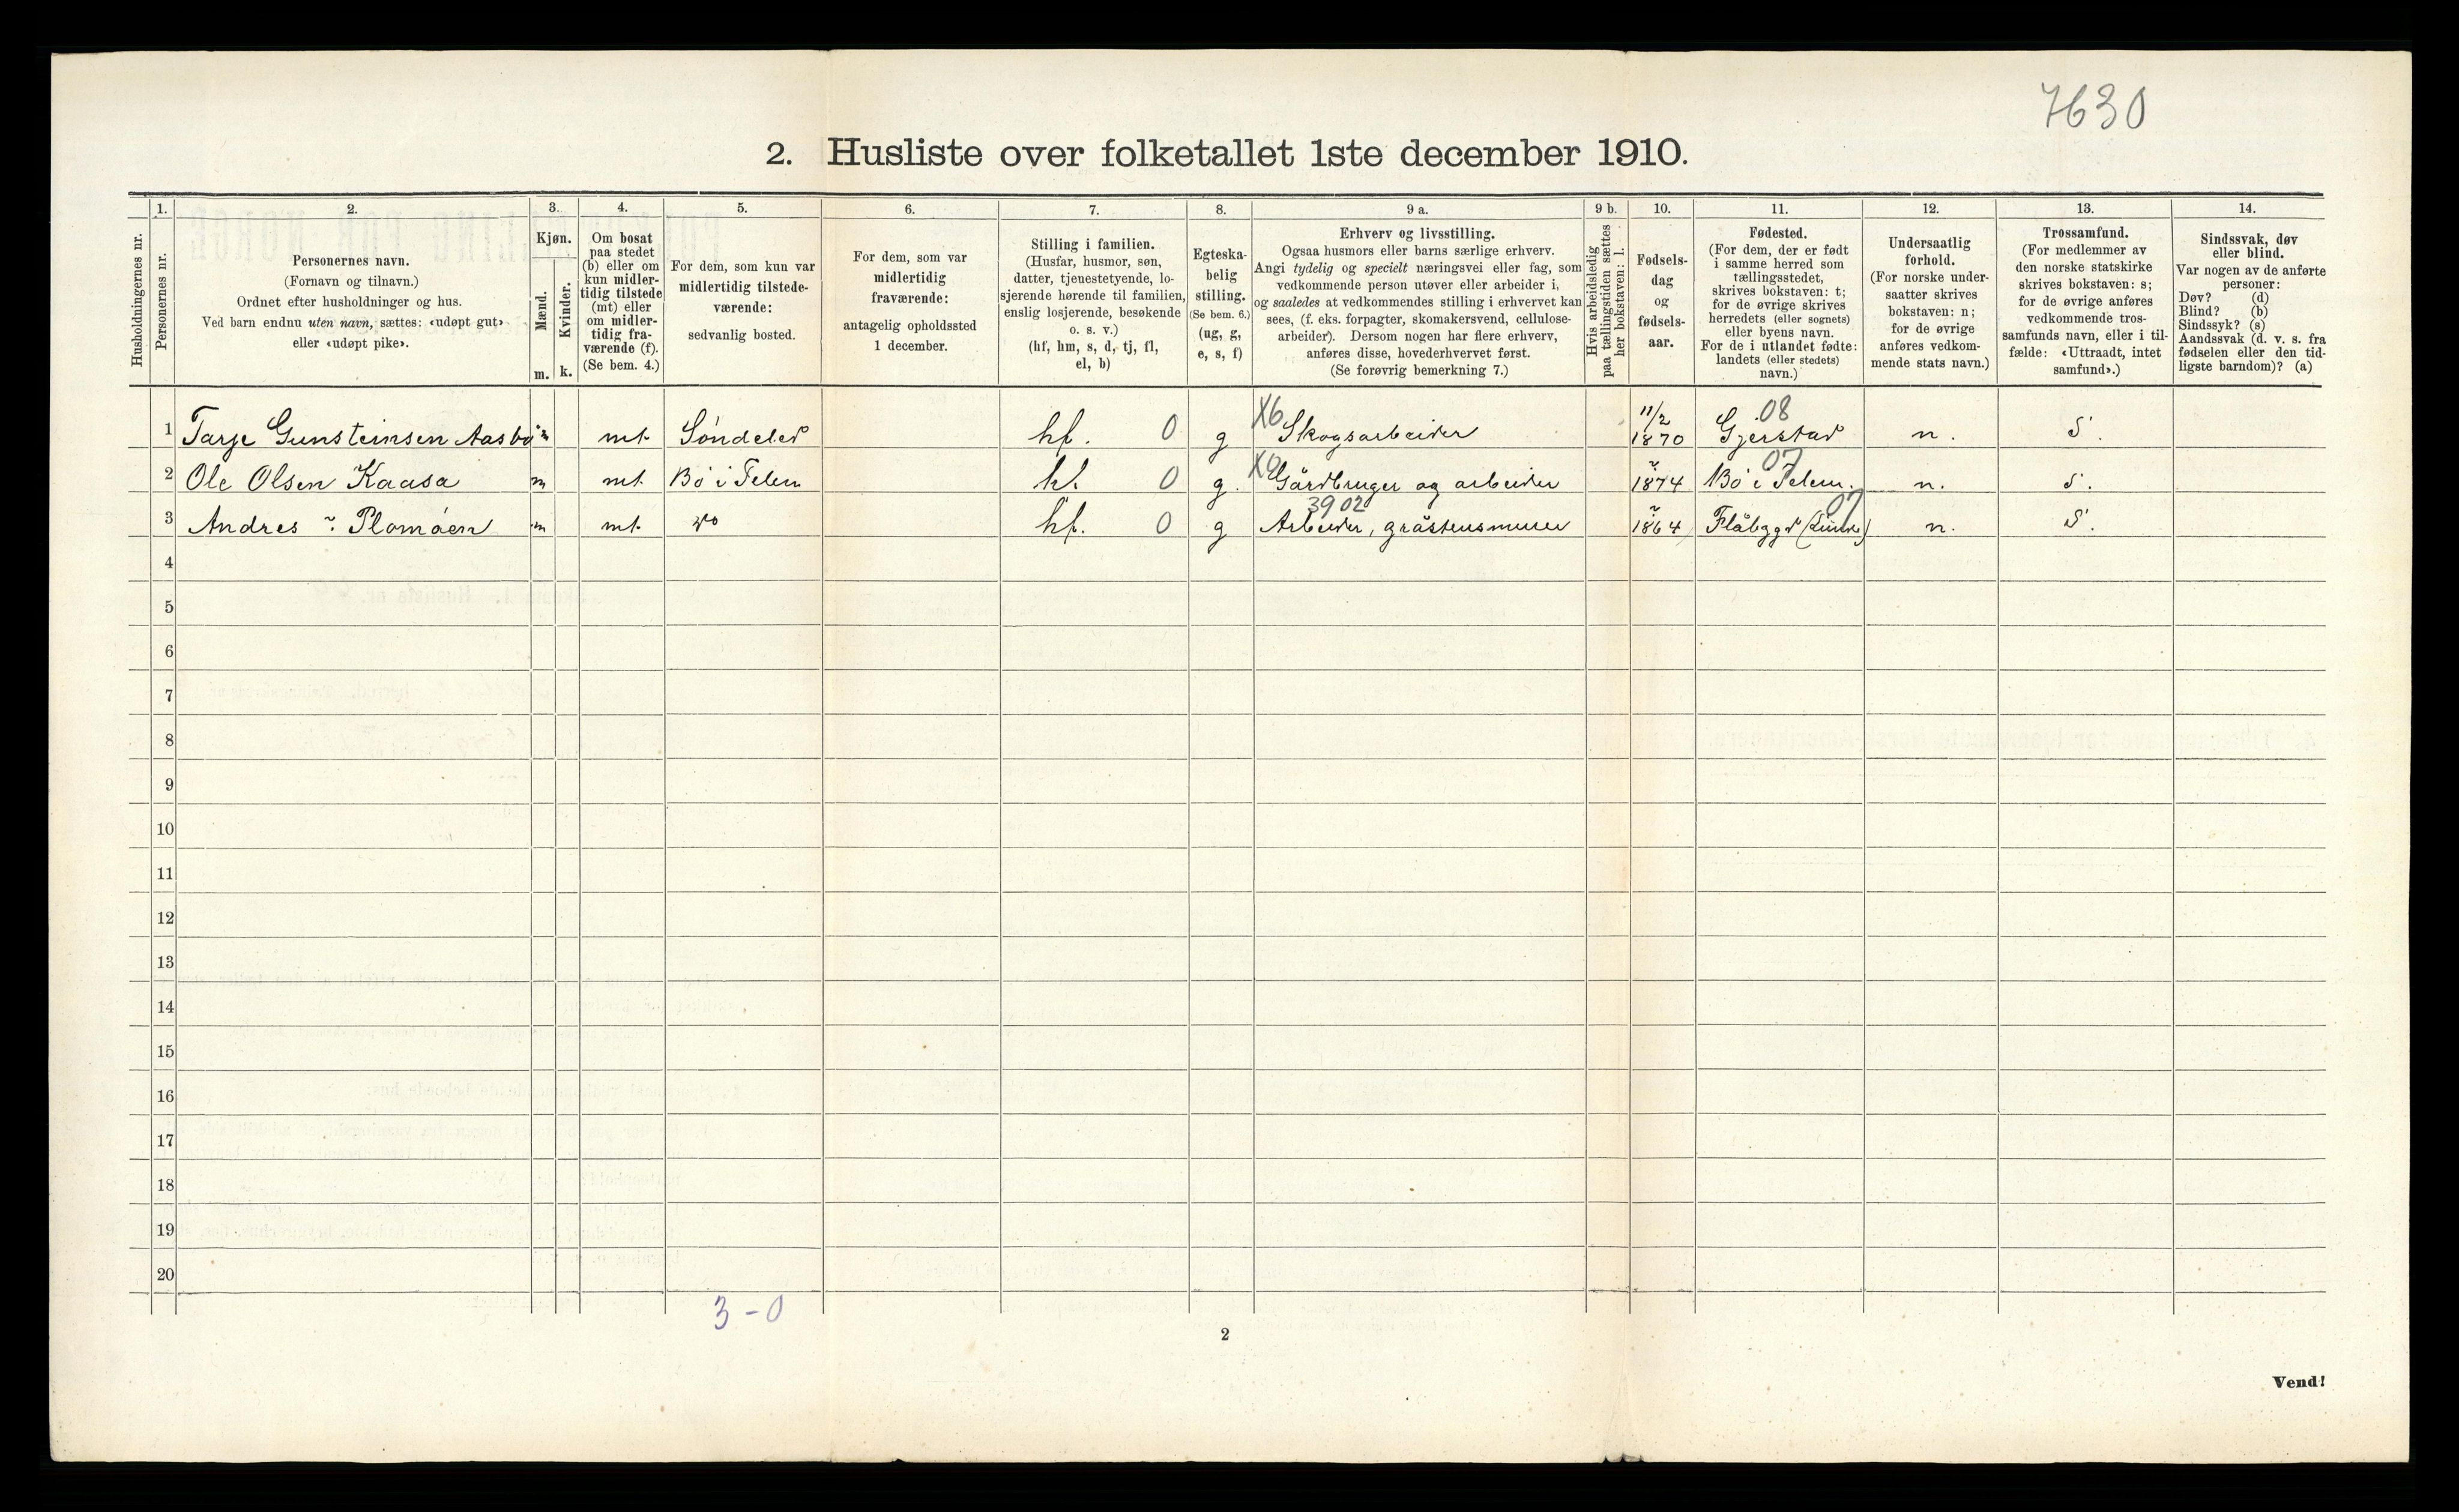 7630
2. Husliste over folketallet 1ste december 1910.
1. 2. 3. 4. 5. 6. 7. 8. 9 a. 9 b. 10. 11. 12. 13. 14.
Husholdningernes nr.
Personernes nr.
Personernes navn.
(Fornavn og tilnavn.)
Ordnet efter husholdninger og hus.
Ved barn endnu uten navn, sættes: «udøpt gut»
eller «udøpt pike».
Kjøn.
Mænd.
Kvinder.
m. k.
Om bosat
paa stedet
(b) eller om
kun midler-
tidig tilstede
(mt) eller
om midler-
tidig fra-
værende (f).
(Se bem. 4.)
For dem, som kun var
midlertidig tilstede-
værende:
sedvanlig bosted.
For dem, som var
midlertidig
fraværende:
antagelig opholdssted
1 december.
Stilling i familien.
(Husfar, husmor, søn,
datter, tjenestetyende, lo-
sjerende hørende til familien,
enslig losjerende, besøkende
o. s. v.)
(hf, hm, s, d, tj, fl,
el, b)
Egteska-
belig
stilling.
(Se bem. 6.)
(ug, g,
e, s, f)
Erhverv og livsstilling.
Ogsaa husmors eller barns særlige erhverv.
Angi tydelig og specielt næringsvei eller fag, som
vedkommende person utøver eller arbeider i,
og saaledes at vedkommendes stilling i erhvervet kan
sees, (f. eks. forpagter, skomakersvend, cellulose-
arbeider). Dersom nogen har flere erhverv,
anføres disse, hovederhvervet først.
(Se forøvrig bemerkning 7.)
Hvis arbeidsledig
paa tællingstiden sættes
her bokstaven: l.
Fødsels-
dag
og
fødsels-
aar.
Fødested.
(For dem, der er født
i samme herred som
tællingsstedet,
skrives bokstaven: t;
for de øvrige skrives
herredets (eller sognets)
eller byens navn.
For de i utlandet fødte:
landets (eller stedets)
navn.)
Undersaatlig
forhold.
(For norske under-
saatter skrives
bokstaven: n;
for de øvrige
anføres vedkom-
mende stats navn.)
Trossamfund.
(For medlemmer av
den norske statskirke
skrives bokstaven: s;
for de øvrige anføres
vedkommende tros-
samfunds navn, eller i til-
fælde: «Uttraadt, intet
samfund».)
Sindssvak, døv
eller blind.
Var nogen av de anførte
personer:
Døv? (d)
Blind? (b)
Sindssyk? (s)
Aandssvak (d. v. s. fra
fødselen eller den tid-
ligste barndom)? (a)
X6 11/2 08
1 Tarje Gunsteinsen Aasbø m mt. Søndeled hf. 0 g Skogsarbeider 1870 Gjerstad n. S.
X0 07
2 Ole Olsen Kaasa m mt. Bø i Telem hf. 0 g. Gårdbruger og arbeider 1874 Bø i Telem. n. S.
3902 07
3 Andres Plomoen m mt. do hf. 0 g Arbeider, gråstensmurer 1864 Flåbygd (Lunde) n. S.
4
5
6
7
8
9
10
11
12
13
14
15
16
17
18
19
20
3 - 0
2
Vend!